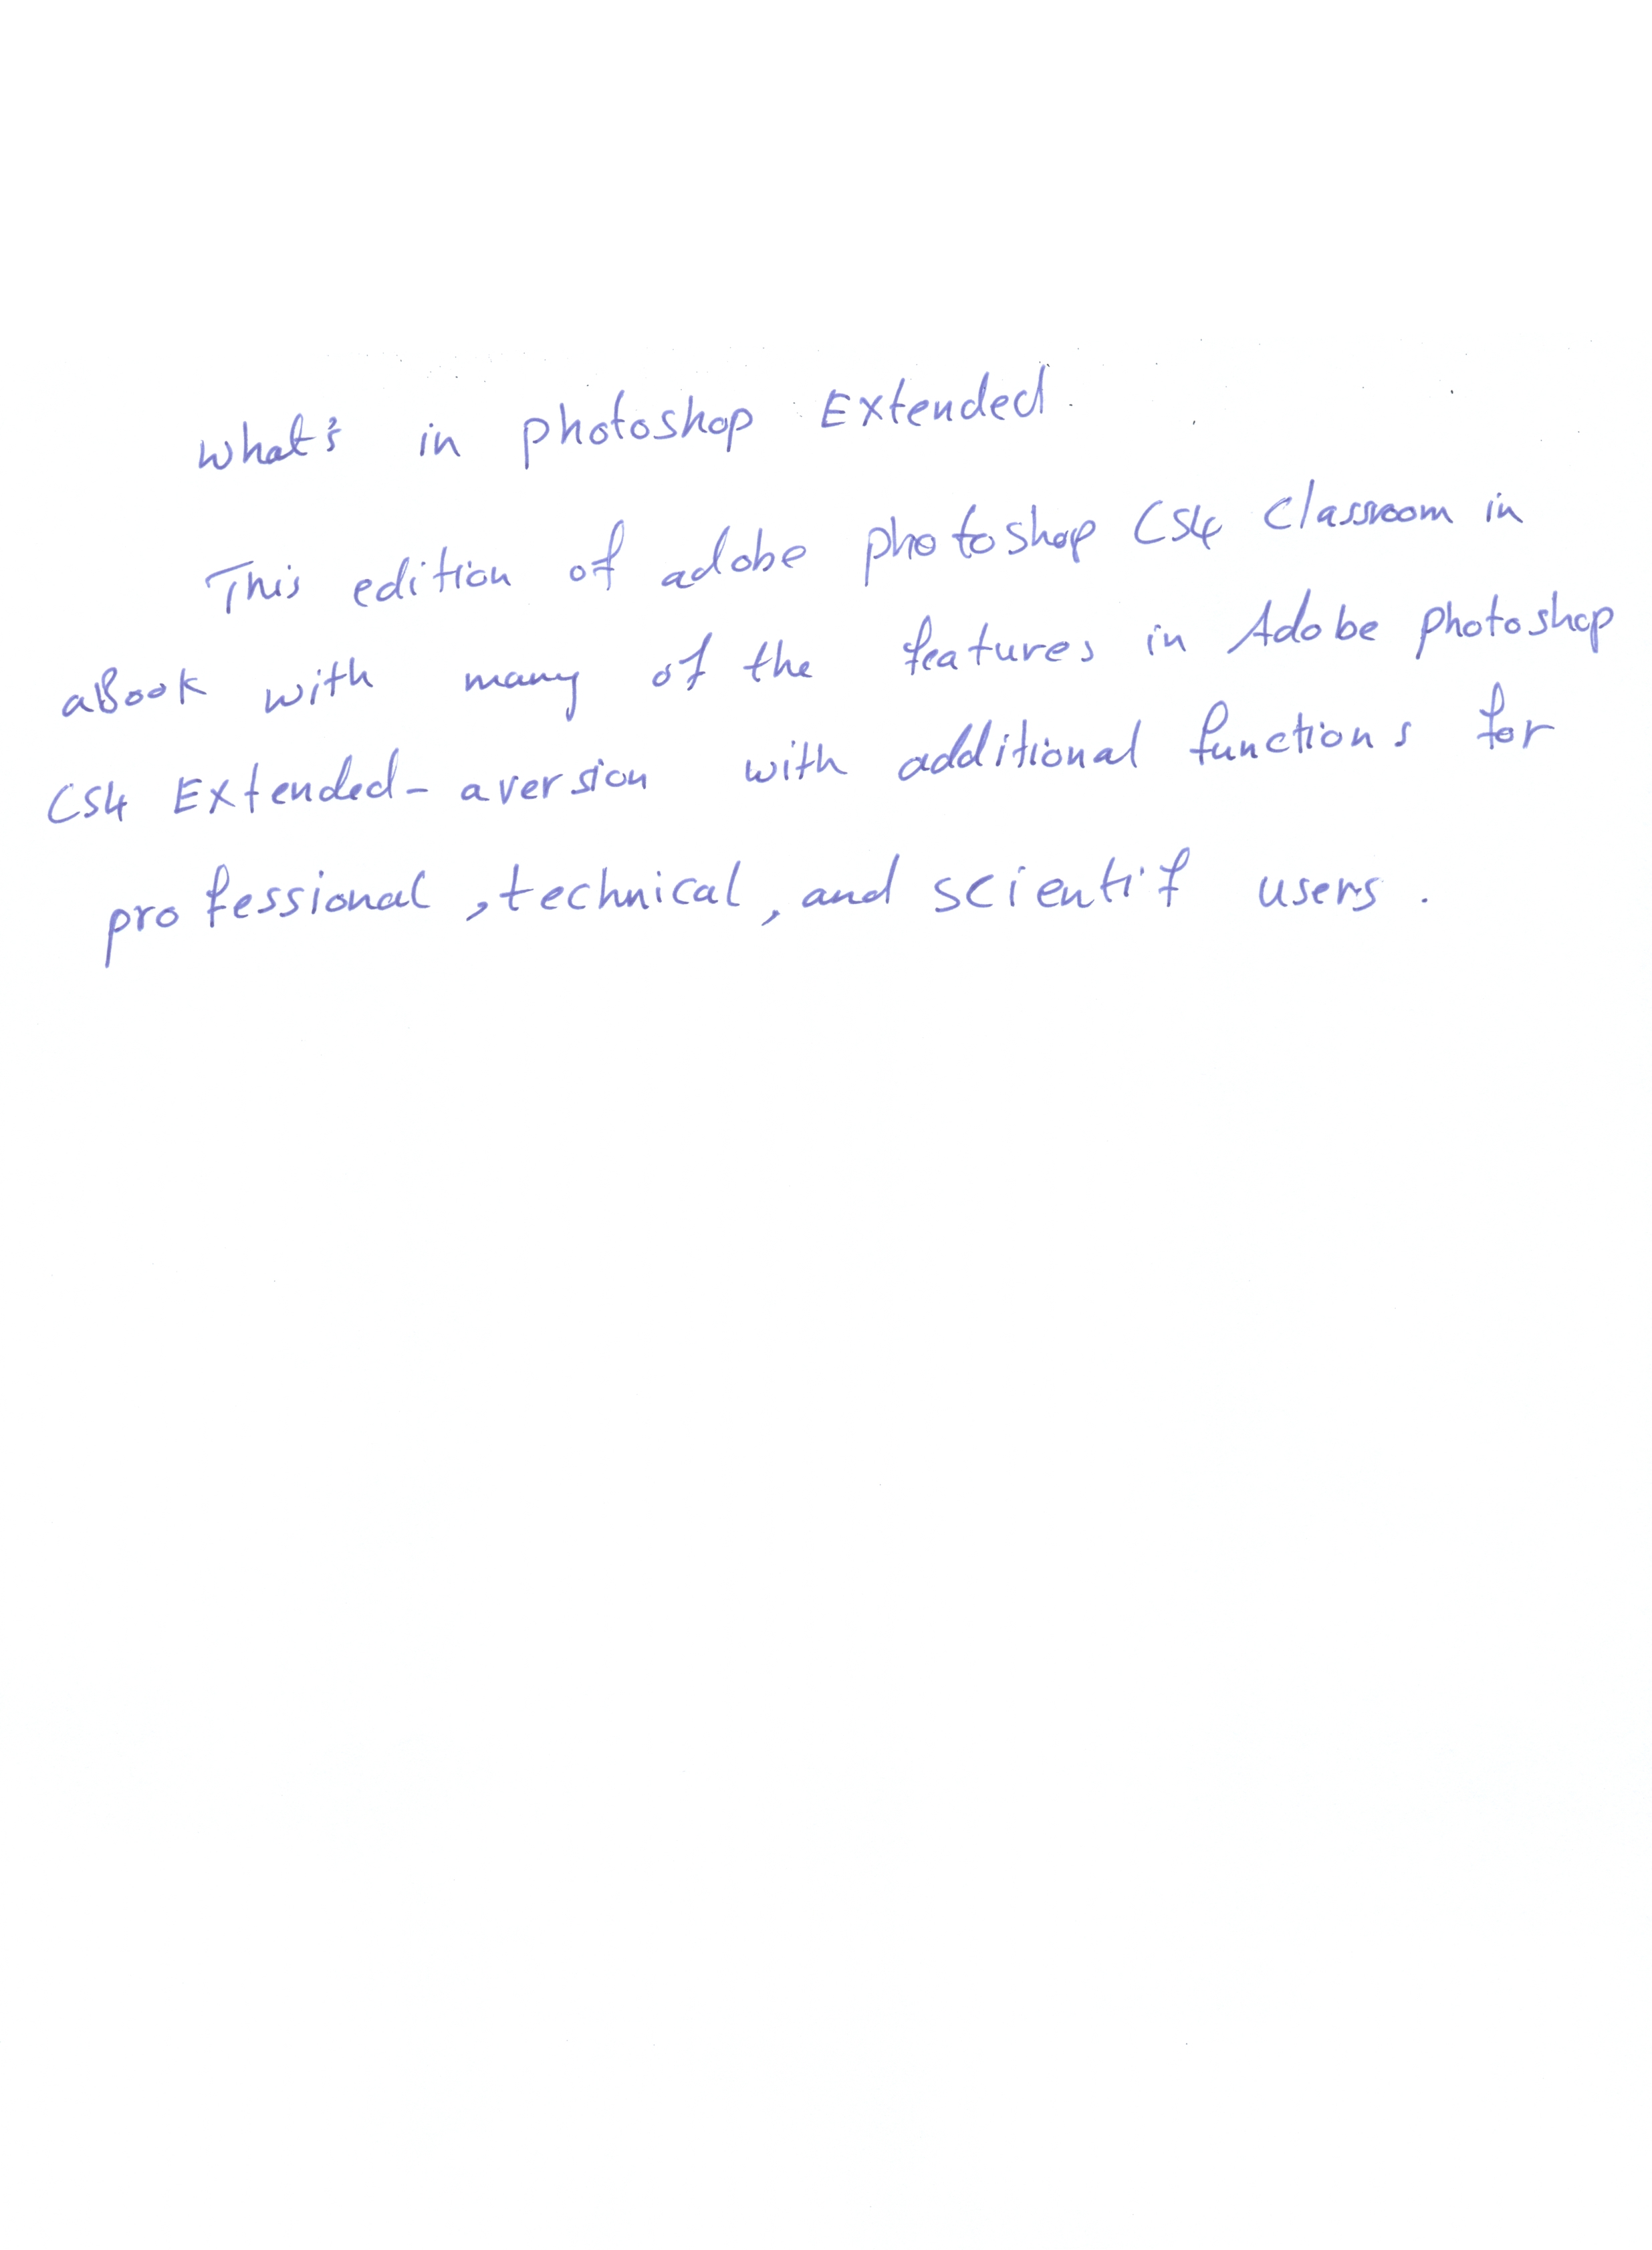 what's in photoshop Extended.
This edition of adobe photoshop CS4 Classroom in
aBook with many of the features in Adobe photoshop
CS4 Extended- aversion with additional functions for
professional, technical, and scientif users.